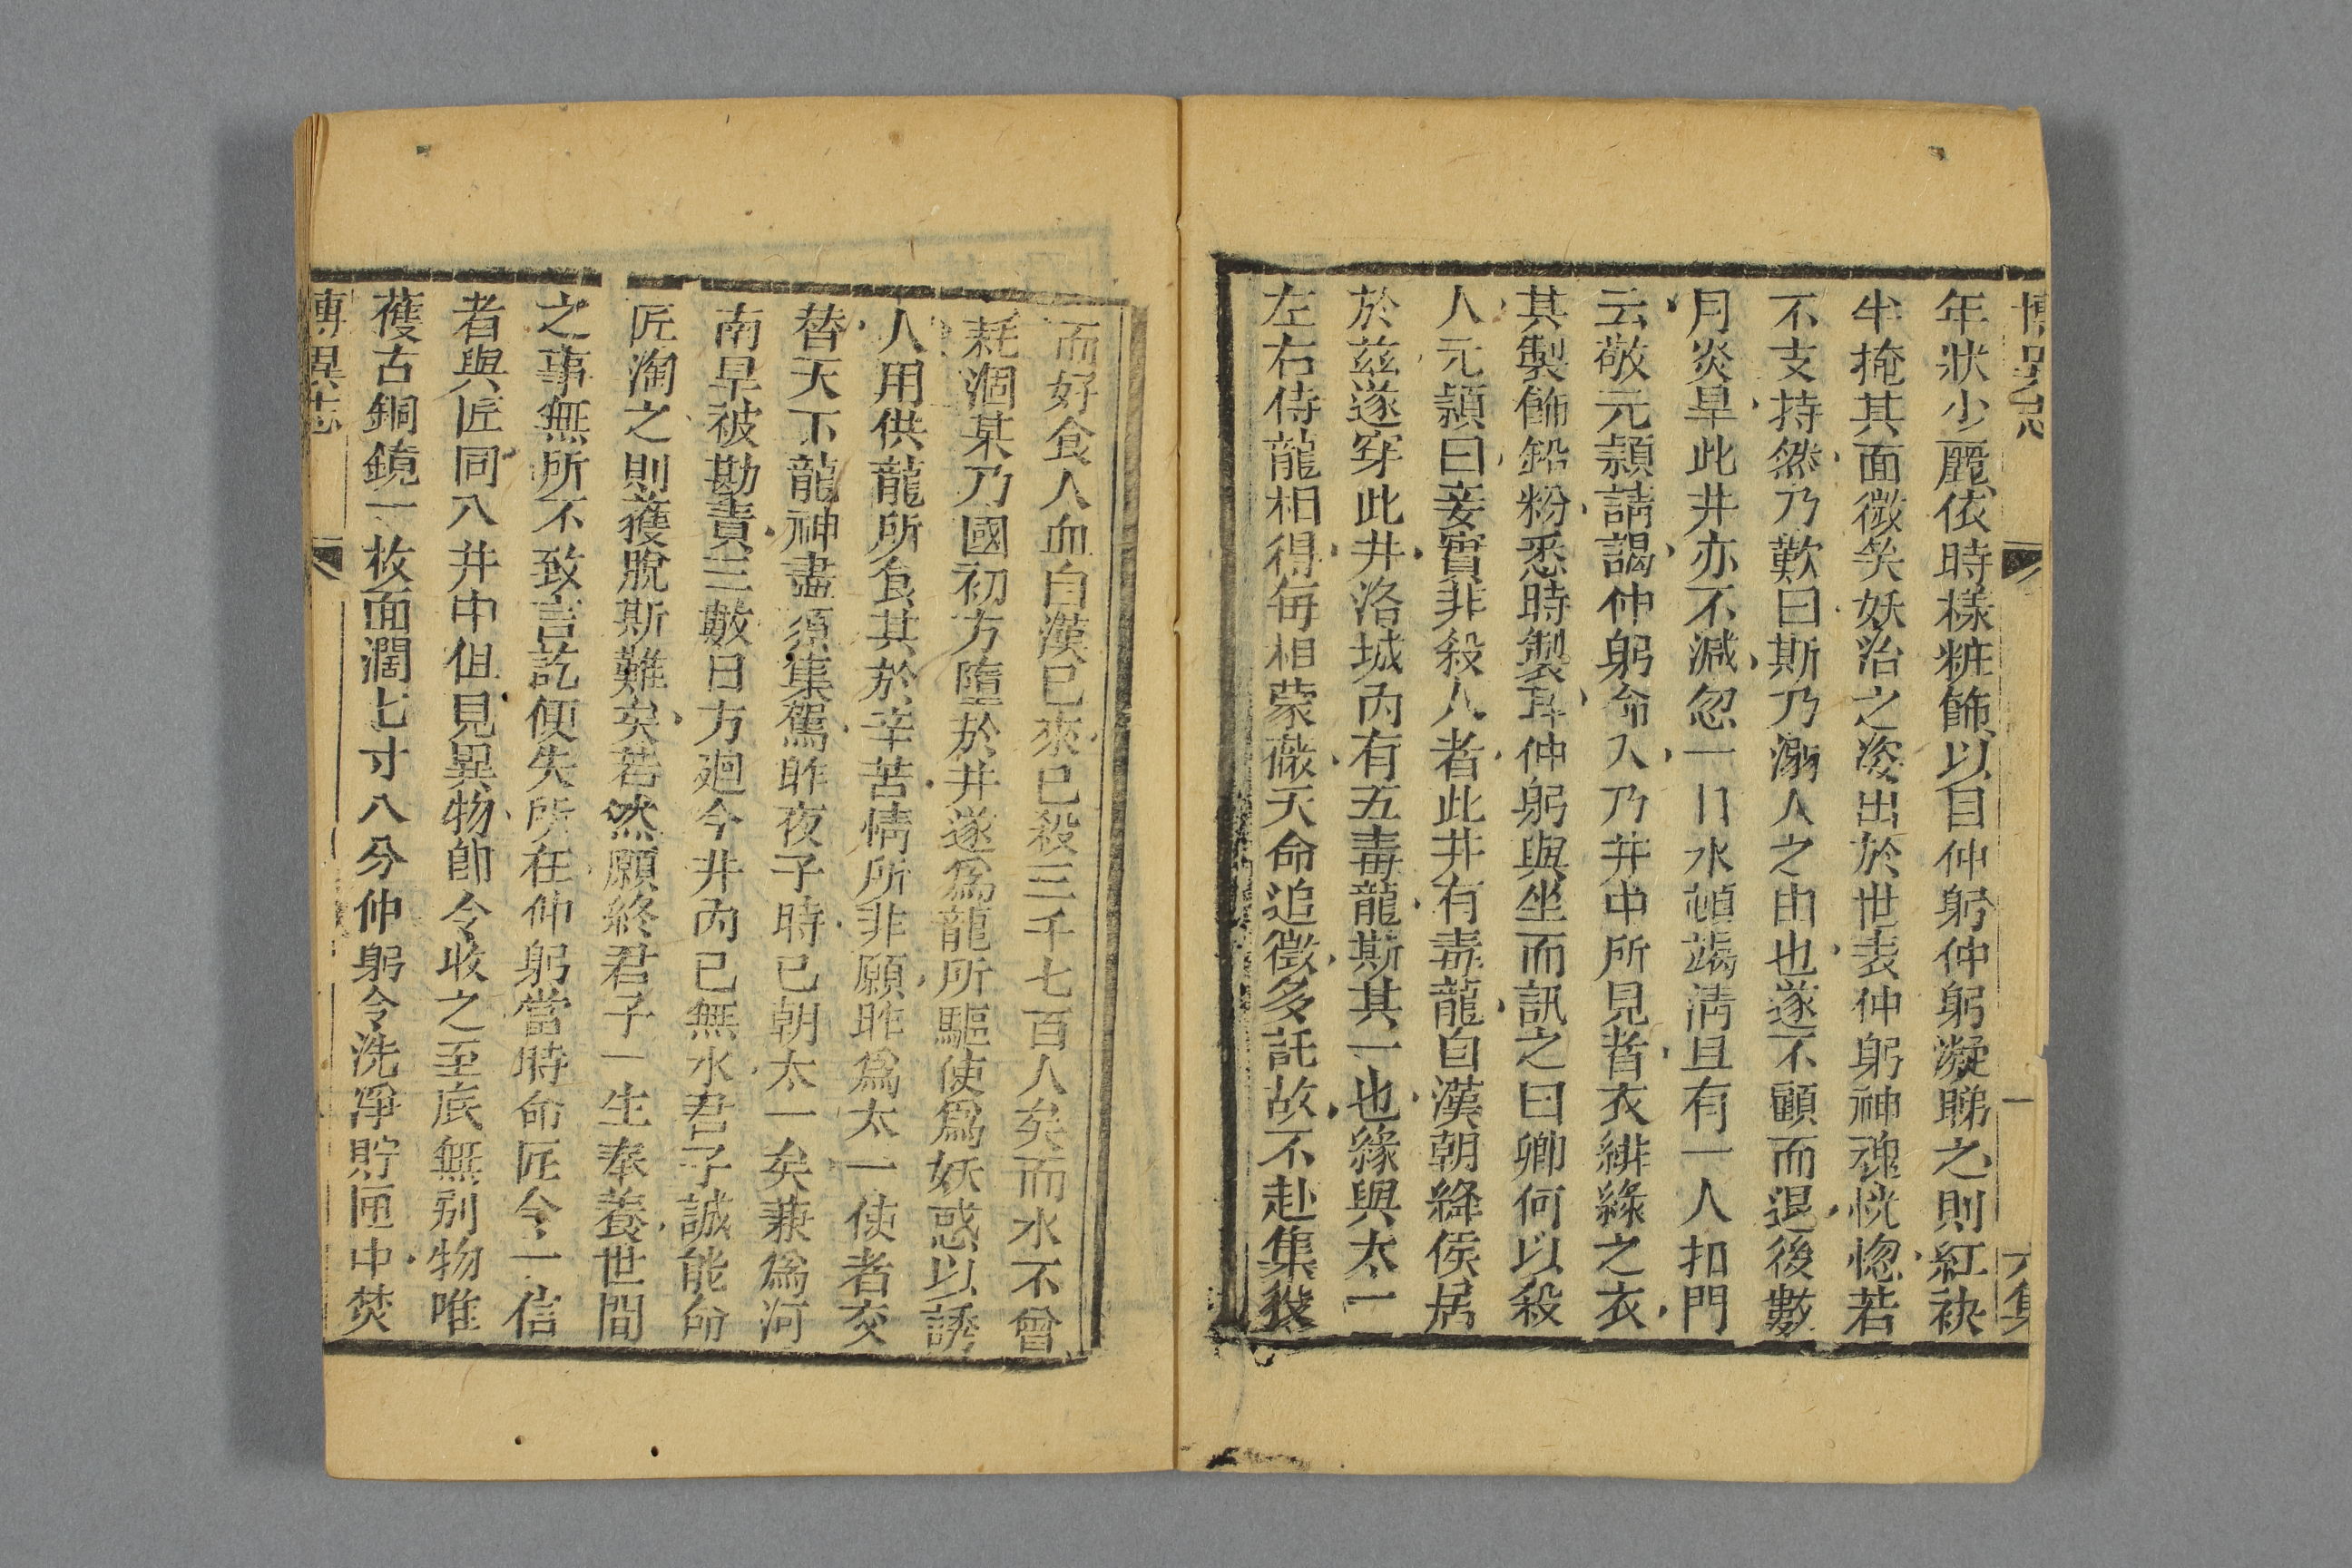 博異志 一 六集
年狀少麗依時樣粧飾以目仲躬仲躬凝睇之則紅袂
半掩其面微笑妖冶之姿出於世表仲躬神魂恍惚若
不支持然乃歎曰斯乃溺人之由也遂不顧而退後數
月炎旱此井亦不減忽一日水頓竭淸旦有一人扣門
云敬元頴請謁仲躬命入乃井中所見者衣緋綠之衣
其製飾鉛粉悉時製耳仲躬與坐而訊之曰卿何以殺
人元頴曰妾實非殺人者此井有毒龍自漢朝絳侯居
於茲遂穿此井洛城內有五毒龍斯其一也緣與太一
左右侍龍相得每相蒙蔽天命追徵多託故不赴集役
而好食人血自漢已來已殺三千七百人矣而水不曾
耗涸某乃國初方墮於井遂爲龍所驅使爲妖惑以誘
人用供龍所食其於辛苦情所非願昨爲太一使者交
替天下龍神盡須集駕昨夜子時已朝太一矣兼爲河
南旱被勘責三數日方廻今井內已無水君子誠能命
匠淘之則獲脫斯難矣若然願終君子一生奉養世間
之事無所不致言訖便失所在仲躬當時命匠令一信
者與匠同入井中但見異物卽令收之至底無別物唯
獲古銅鏡一枚面濶七寸八分仲躬令洗淨貯匣中焚
博異志